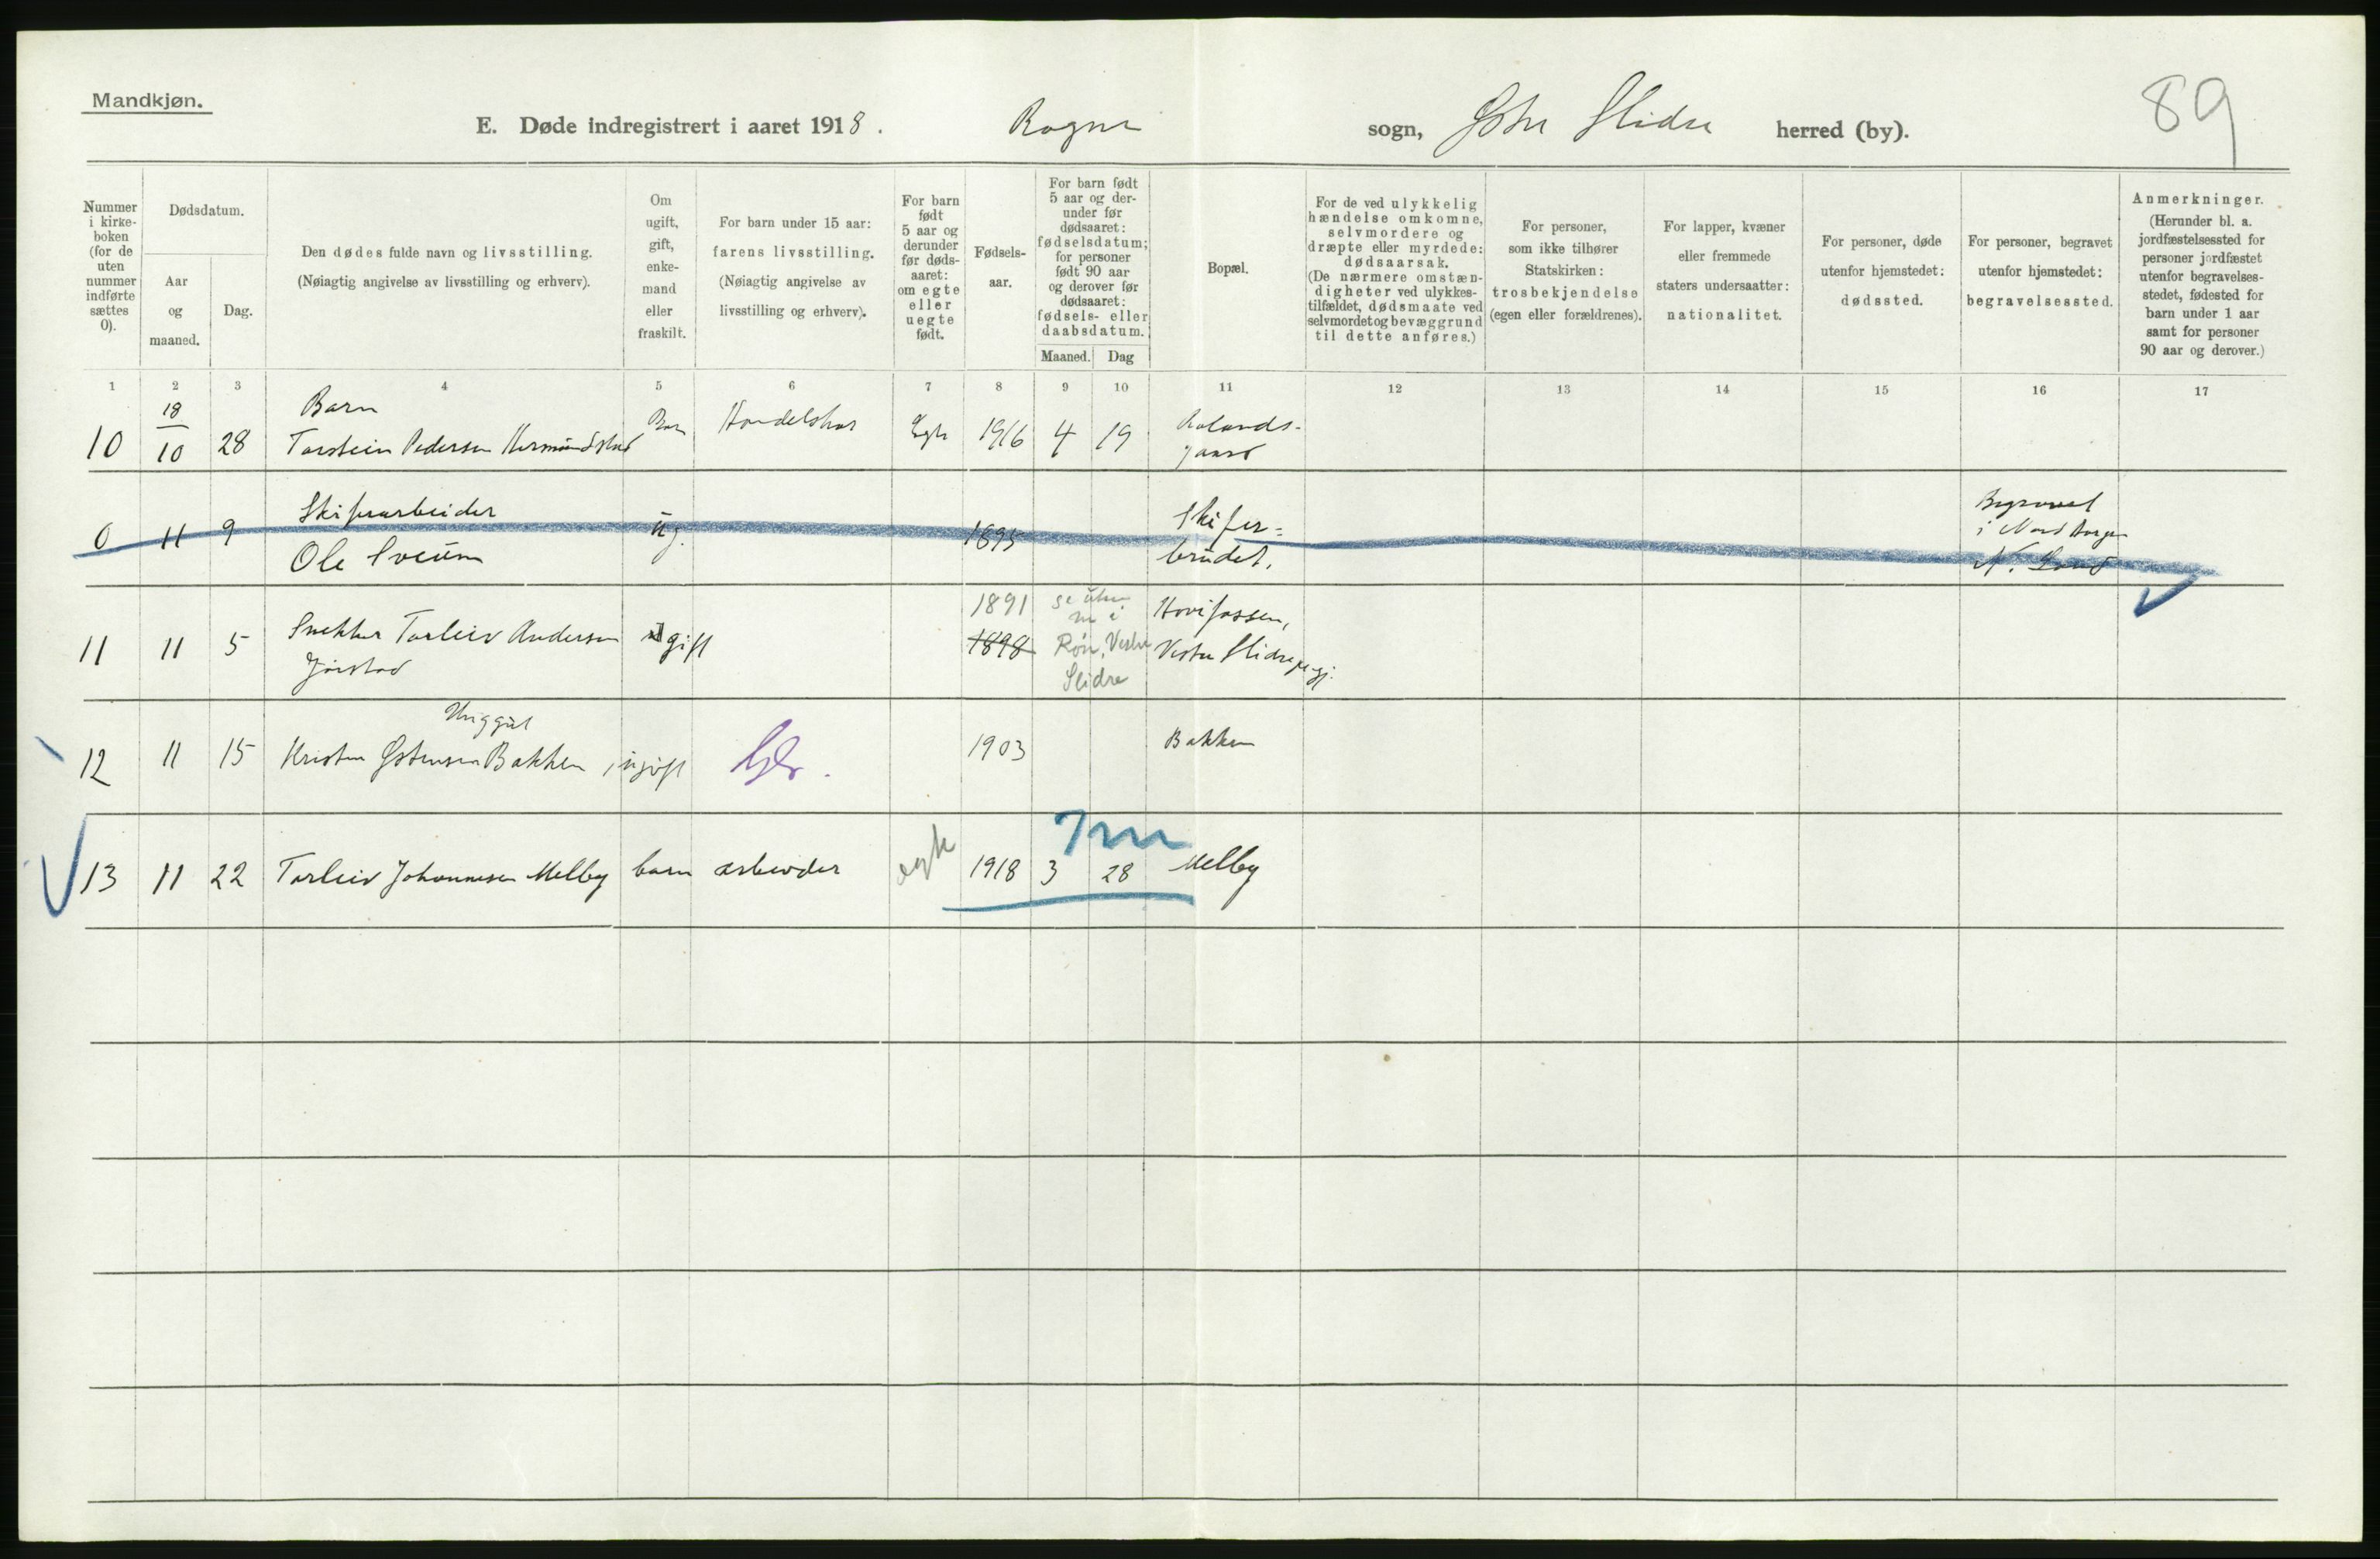 Mandkjøn.
E. Døde indregistrert i aaret 1918. Rogne sogn, Østre Slidre herred (by).
89
Nummer i kirke-boken (for de uten nummer indførte sættes 0).
Dødsdatum.
Aar og maaned.
Dag.
Den dødes fulde navn og livsstilling.
(Nøiagtig angivelse av livsstilling og erhverv).
Om ugift, gift, enke-mand eller fraskilt.
For barn under 15 aar: farens livsstilling.
(Nøiagtig angivelse av livsstilling og erhverv).
For barn født 5 aar og derunder før døds-aaret: om egte eller uegte født.
Fødsels-aar.
For barn født 5 aar og der-under før dødsaaret: fødselsdatum; for personer født 90 aar og derover før dødsaaret: fødsels- eller daabsdatum.
Maaned. Dag
Bopæl.
For de ved ulykkelig hændelse omkomne, selvmordere og dræpte eller myrdede: dødsaarsak.
(De nærmere omstæn-digheter ved ulykkes-tilfældet, dødsmaate ved selvmordet og bevæggrund til dette anføres.)
For personer, som ikke tilhører Statskirken: trosbekjendelse (egen eller forældrenes).
For lapper, kvæner eller fremmede staters undersaatter: nationalitet.
For personer, døde utenfor hjemstedet: dødssted.
For personer, begravet utenfor hjemstedet: begravelsessted.
Anmerkninger.
(Herunder bl. a. jordfæstelsessted for personer jordfæstet utenfor begravelses-stedet, fødested for barn under 1 aar samt for personer 90 aar og derover.)
1 2 3 4 5 6 7 8 9 10 11 12 13 14 15 16 17
18 Barn
10 10 28 Torstein Pedersen Hermundstad Barn Egte 1916 4 19
Skiferarbeider Skifer=
0 11 9 Ole Sveum ug. 1895 brudet.
Begravet
i Nord
N. Land
1891 Hovifossen,
11 11 5 Snekker Torleiv Andersen gift 1898 Røn, Vestre Vestre Slidre
Jørstad Slidre
Huggut
12 11 15 Kristen Østensen Bakken, ugift 1903 Bakken
7 m
13 11 22 Torleiv Johannesen Melby barn arbeider egte 1918 3 28 Melby